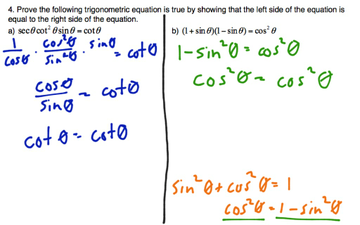 4. Prove the following trigonometric equation is true by showing that the left side of the equation is
equal to the right side of the equation.
a) secθcot²θsinθ = cotθ
1/cosθ · cos²θ/sin²θ · sinθ = cotθ
cosθ/sinθ = cotθ
cotθ = cotθ
b) (1+sinθ)(1−sinθ) = cos²θ
1−sin²θ = cos²θ
cos²θ = cos²θ
sin²θ + cos²θ = 1
cos²θ = 1−sin²θ